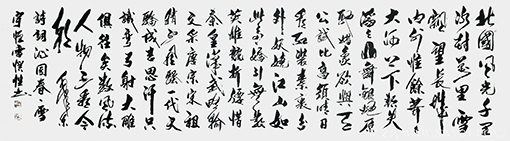 北國風光千里
冰封萬里雪
飄望長城內
外惟餘莽莽
大河上下頓失
滔滔山舞銀蛇原
馳蠟象欲與天
公試比高須晴日
看紅裝素裹分
外妖嬈江山如
此多嬌引無數
英雄競折腰惜
秦皇漢武略輸
文采唐宗宋祖
稍遜風騷一代天
驕成吉思汗只
識彎弓射大雕
俱往矣數風流
人物還看今
朝 毛澤東
詩詞沁園春雪